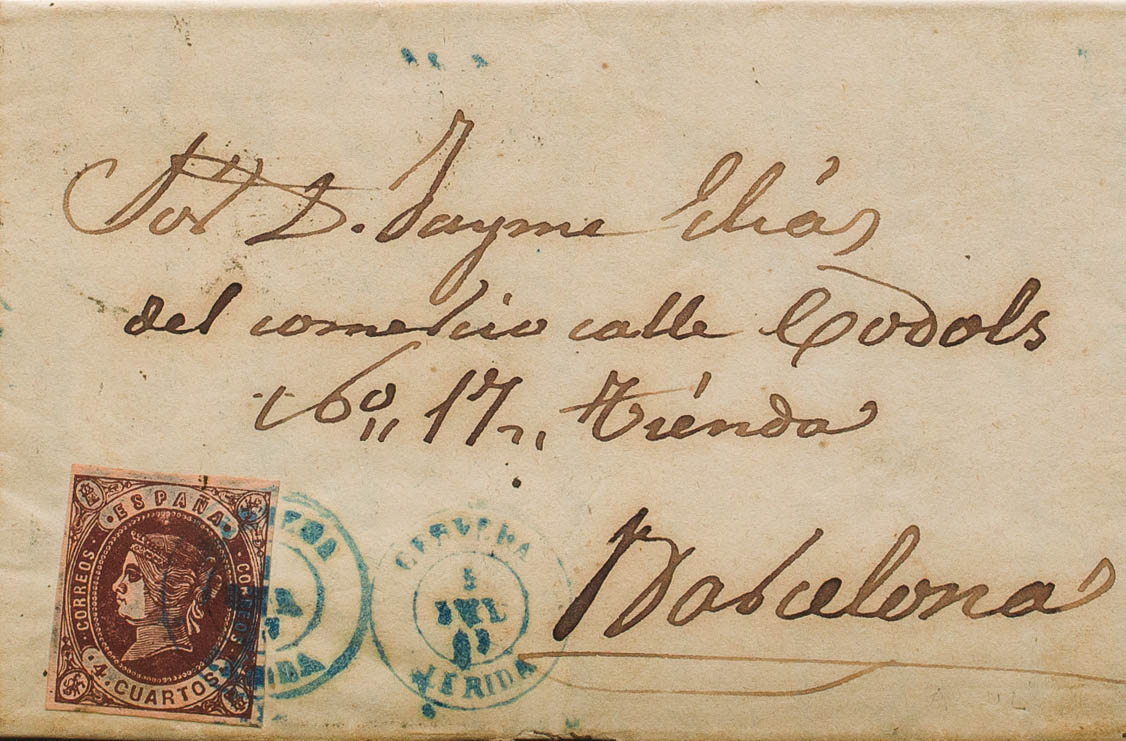 Sor D. Jayme Elías
del comercio calle Codols
No 17, Tiénda
Barcelona
ESPAÑA
CORREOS
CORREOS
4 CUARTOS
CERVERA
5
JUL
LERIDA